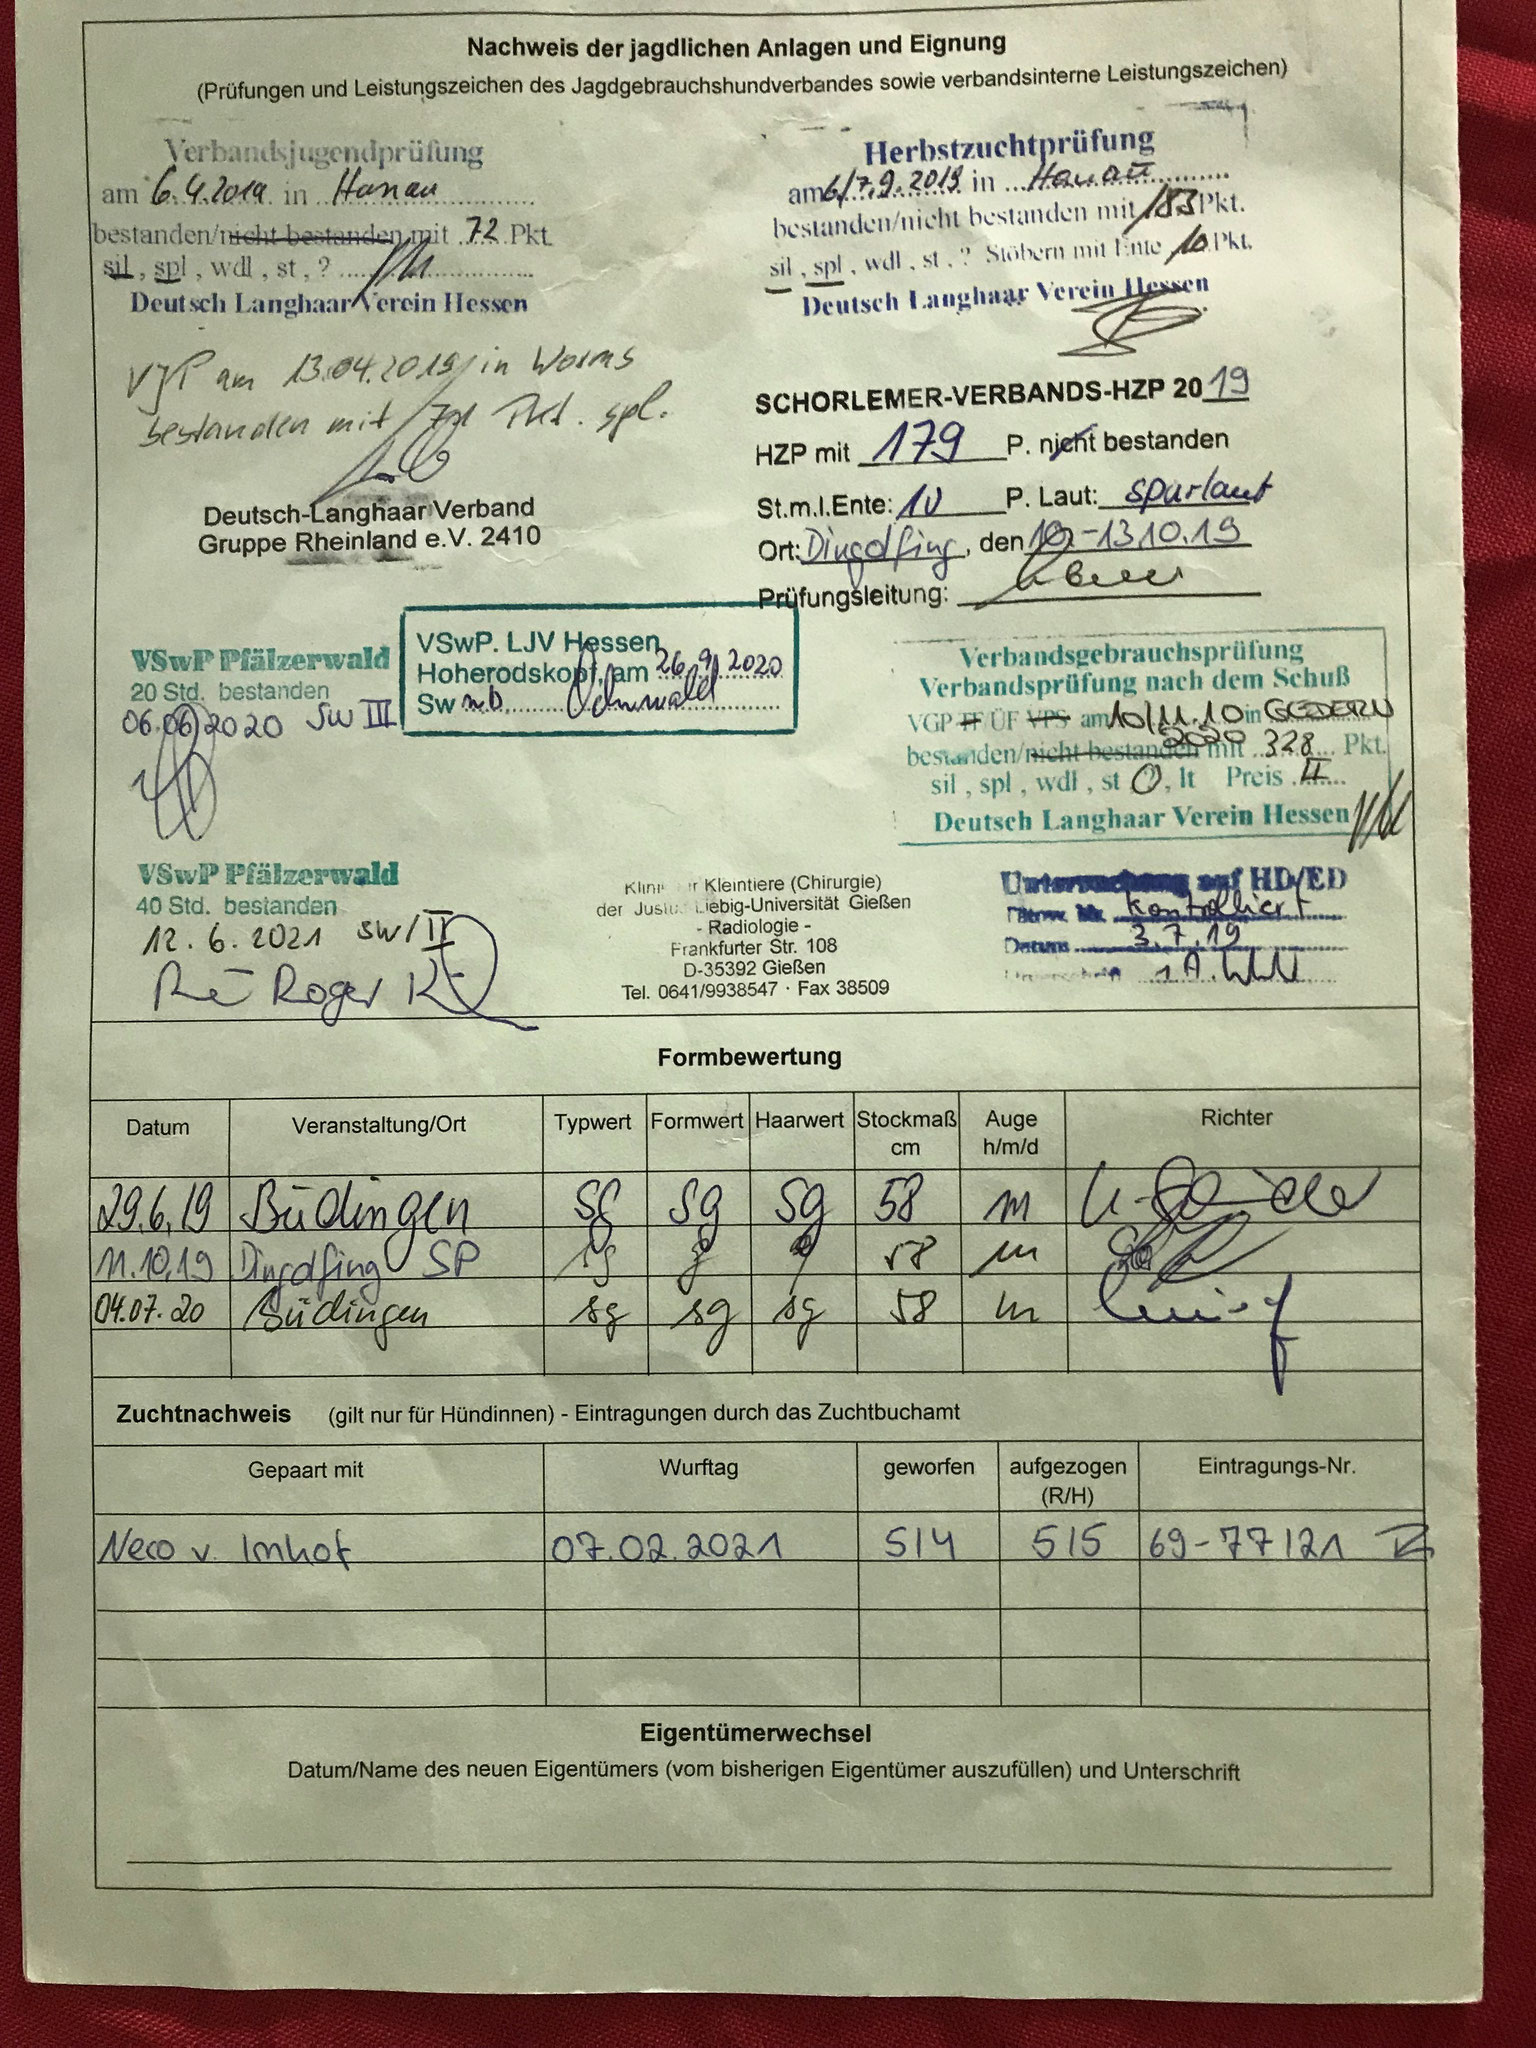 Nachweis der jagdlichen Anlagen und Eignung
(Prüfungen und Leistungszeichen des Jagdgebrauchshundverbandes sowie verbandsinterne Leistungszeichen)
Verbandsjugendprüfung
am 6.4.2019 in Hanau
bestanden/nicht bestanden mit 72 Pkt.
sil, spl, wdl, st, ?
Deutsch Langhaar Verein Hessen
Herbstzuchtprüfung
am 6/7.9.2019 in Hanau
bestanden/nicht bestanden mit 183 Pkt.
sil, spl, wdl, st, ? Stöbern mit Ente 10 Pkt.
Deutsch Langhaar Verein Hessen
VJP am 13.04.2019 in Worms
bestanden mit Pkt. spl.
Deutsch-Langhaar Verband
Gruppe Rheinland e.V. 2410
SCHORLEMER-VERBANDS-HZP 2019
HZP mit 179 P. nicht bestanden
St.m.l.Ente: 10 P. Laut: spurlaut
Ort: Dingolfing, den 10.-13.10.19
Prüfungsleitung:
VSwP Pfälzerwald
20 Std. bestanden
06.06.2020 SW III
VSwP. LJV Hessen
Hoherodskopf, am 26.9.2020
Sw n.b.
Verbandsgebrauchsprüfung
Verbandsprüfung nach dem Schuß
VGP TF ÜF VPS am 10/11.10 2020 in GEDERN
bestanden/nicht bestanden mit 328 Pkt.
sil, spl, wdl, st ?, lt Preis II
Deutsch Langhaar Verein Hessen
VSwP Pfälzerwald
40 Std. bestanden
12.6.2021 SW/II
Kleintiere (Chirurgie)
der Justus Liebig-Universität Gießen
- Radiologie -
Frankfurter Str. 108
D-35392 Gießen
Tel. 0641/9938547 · Fax 38509
Untersuchung auf HD/ED
Kontrolliert
Datum 3.7.19
Unterschrift
Formbewertung
Datum Veranstaltung/Ort Typwert Formwert Haarwert Stockmaß cm Auge h/m/d Richter
29.6.19 Büdingen sg sg sg 58 m
11.10.19 Dingolfing SP sg g g 58 m
04.07.20 Büdingen sg sg sg 58 m
Zuchtnachweis (gilt nur für Hündinnen) - Eintragungen durch das Zuchtbuchamt
Gepaart mit Wurftag geworfen aufgezogen (R/H) Eintragungs-Nr.
Neco v. Imhof 07.02.2021 5/4 5/5 69-77/21
Eigentümerwechsel
Datum/Name des neuen Eigentümers (vom bisherigen Eigentümer auszufüllen) und Unterschrift